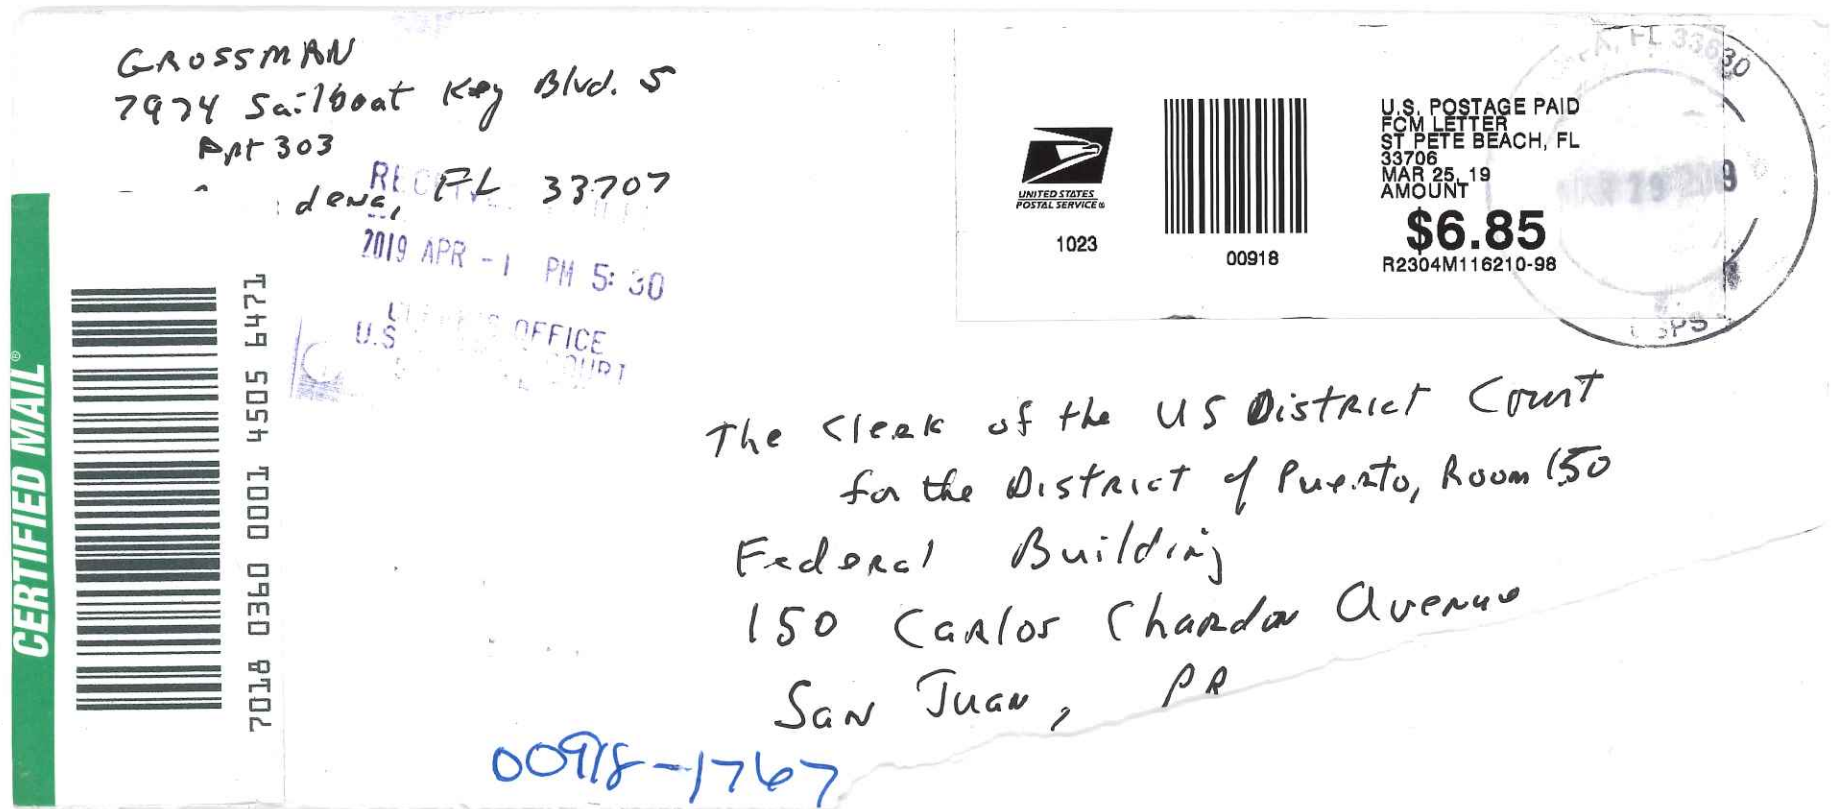 GROSSMAN
7974 Sailboat Key Blvd. S
Apt 303
dena, FL 33707
2019 APR -1 PM 5: 30
OFFICE
U.S
CERTIFIED MAIL®
7018 0360 0001 4505 6471
UNITED STATES
POSTAL SERVICE®
1023
00918
U.S. POSTAGE PAID
FCM LETTER
ST PETE BEACH, FL
33706
MAR 25, 19
AMOUNT
$6.85
R2304M116210-98
FL 33630
USPS
The Clerk of the US District Court
for the District of Puerto, Room 150
Federal Building
150 Carlos Chardon Avenue
San Juan, PR
00918-1767